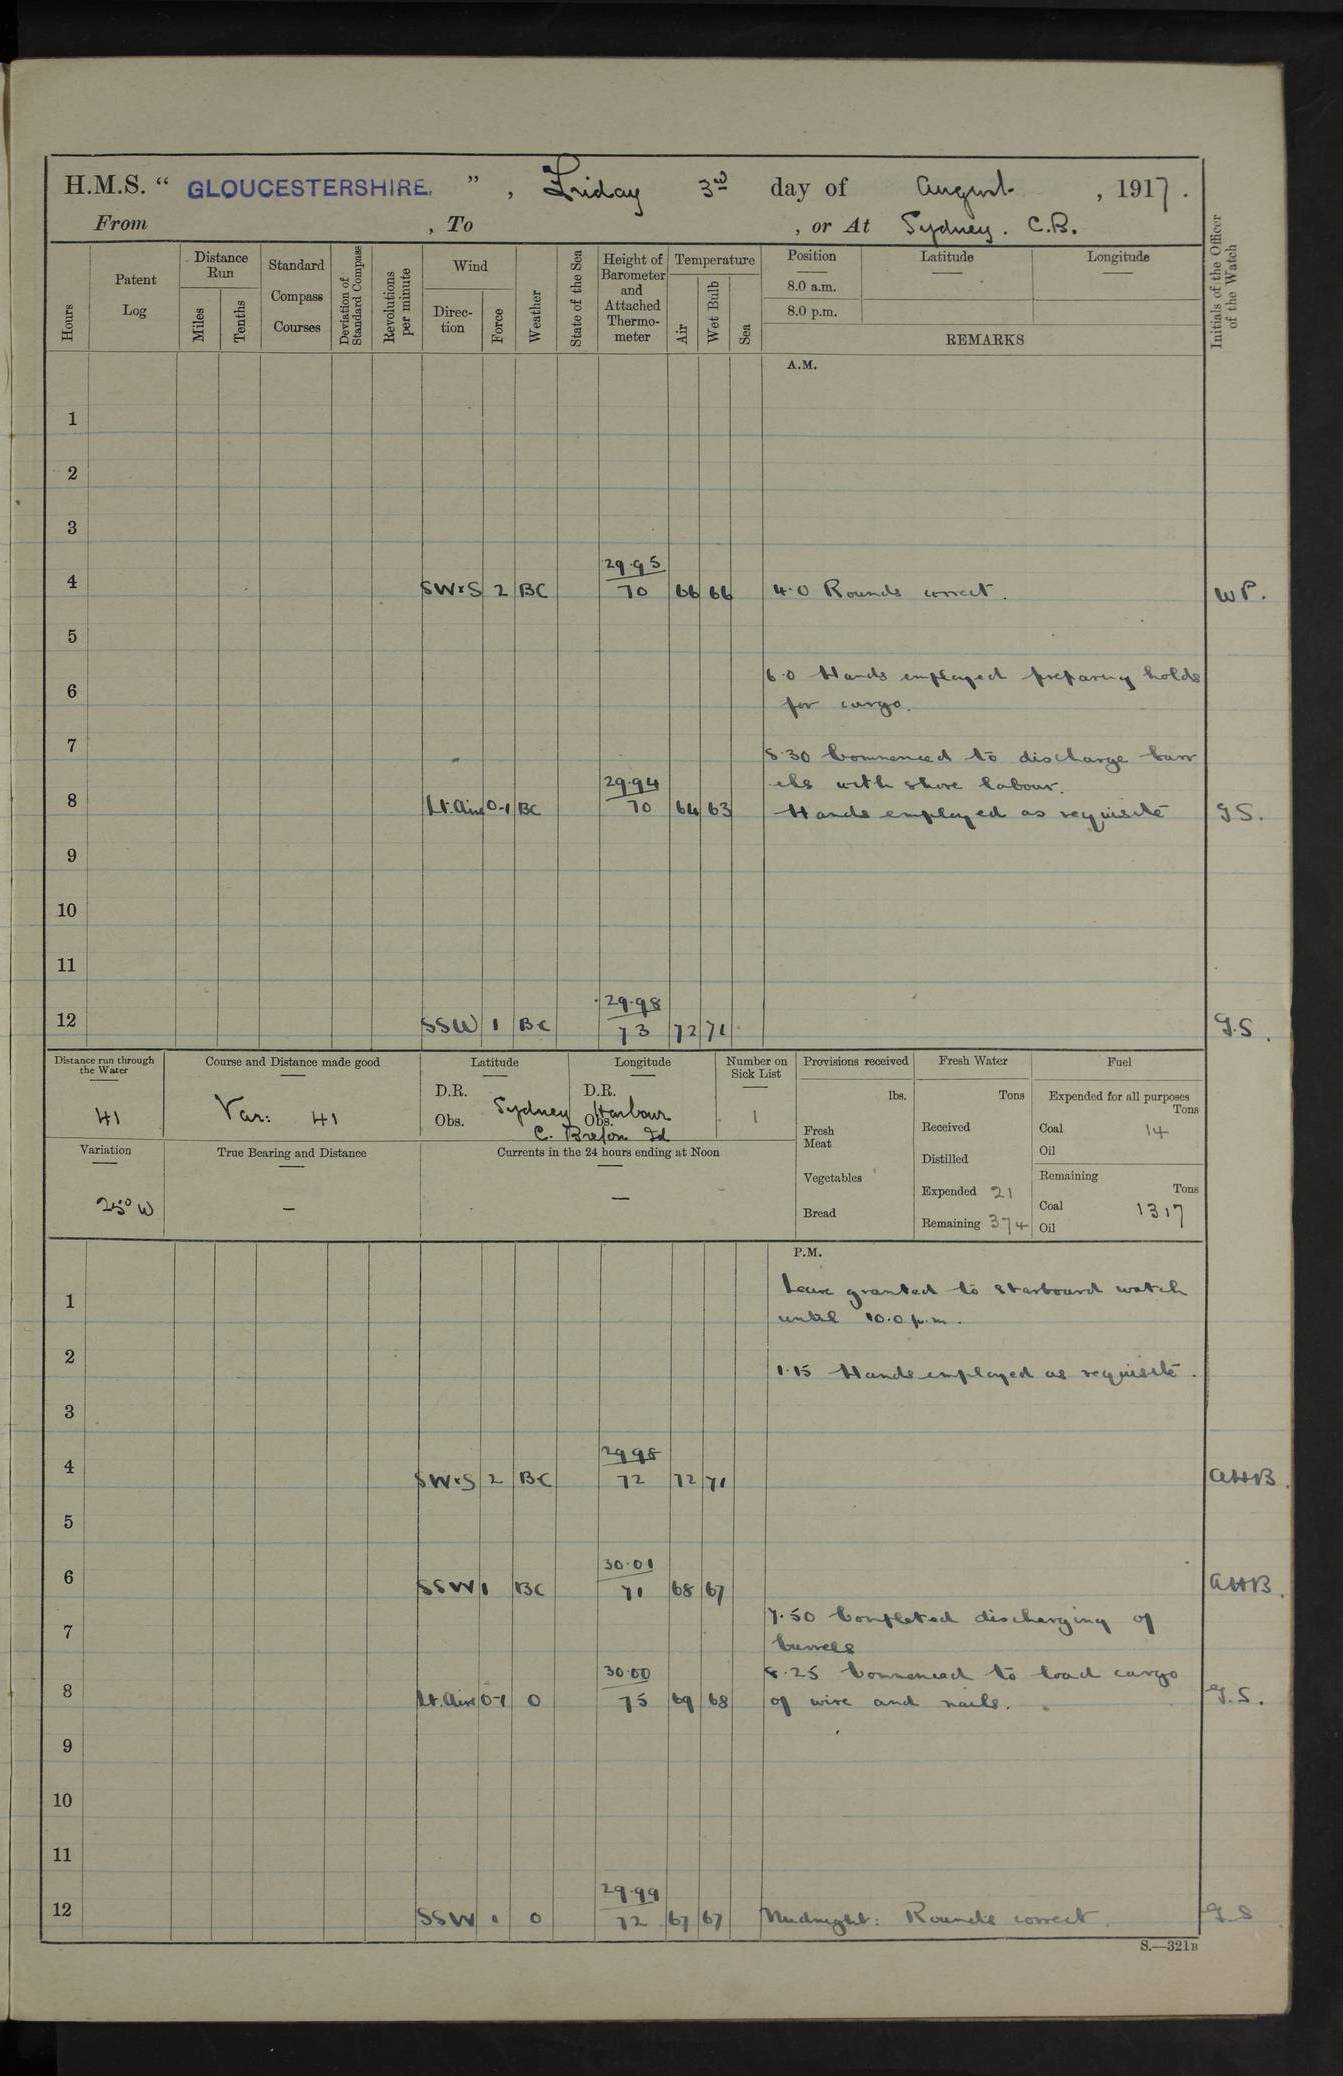 H.M.S. " GLOUCESTERSHIRE. " , Friday 3rd day of August , 1917.
From , To , or At Sydney. C.B.
Hours
Patent Log
Distance Run
Miles
Tenths
Standard Compass Courses
Deviation of Standard Compass
Revolutions per minute
Wind
Direction
Force
Weather
State of the Sea
Height of Barometer and Attached Thermometer
Temperature
Air
Wet Bulb
Sea
Position Latitude Longitude
8.0 a.m.
8.0 p.m.
REMARKS
Initials of the Officer of the Watch
A.M.
1
2
3
29.95
4 SWxS 2 BC 70 66 66 4.0 Rounds correct. WP.
5
6.0 Hands employed preparing holds
6
for cargo.
7
8.30 Commenced to discharge barr
29.94 els with shore labour.
8 Lt. Airs 0-1 BC 70 64 63 Hands employed as requisite G.S.
9
10
11
29.98
12 SSW 1 BC 73 72 71 G.S.
Distance run through the Water
41
Course and Distance made good
Var: 41
Latitude Longitude
D.R. D.R.
Obs. Sydney Obs. Harbour
C. Breton Id
Number on Sick List
1
Variation
25° W
True Bearing and Distance
—
Currents in the 24 hours ending at Noon
—
Provisions received
lbs.
Fresh Meat
Vegetables
Bread
Fresh Water
Tons
Received
Distilled
Expended 21
Remaining 374
Fuel
Expended for all purposes
Tons
Coal 14
Oil
Remaining
Tons
Coal 1317
Oil
P.M.
Leave granted to starboard watch
1
until 10.0 p.m.
2
1.15 Hands employed as requisite.
3
29.98
4 SWxS 2 BC 72 72 71 AHB.
5
30.01
6 SSW 1 BC 71 68 67 AHB.
7.50 Completed discharging of
7
barrels
30.00 8.25 Commenced to load cargo
8 Lt. Airs 0-1 O 75 69 68 of wire and nails. G.S.
9
10
11
29.99
12 SSW 1 O 72 67 67 Midnight: Rounds correct. G.S
S.—321B